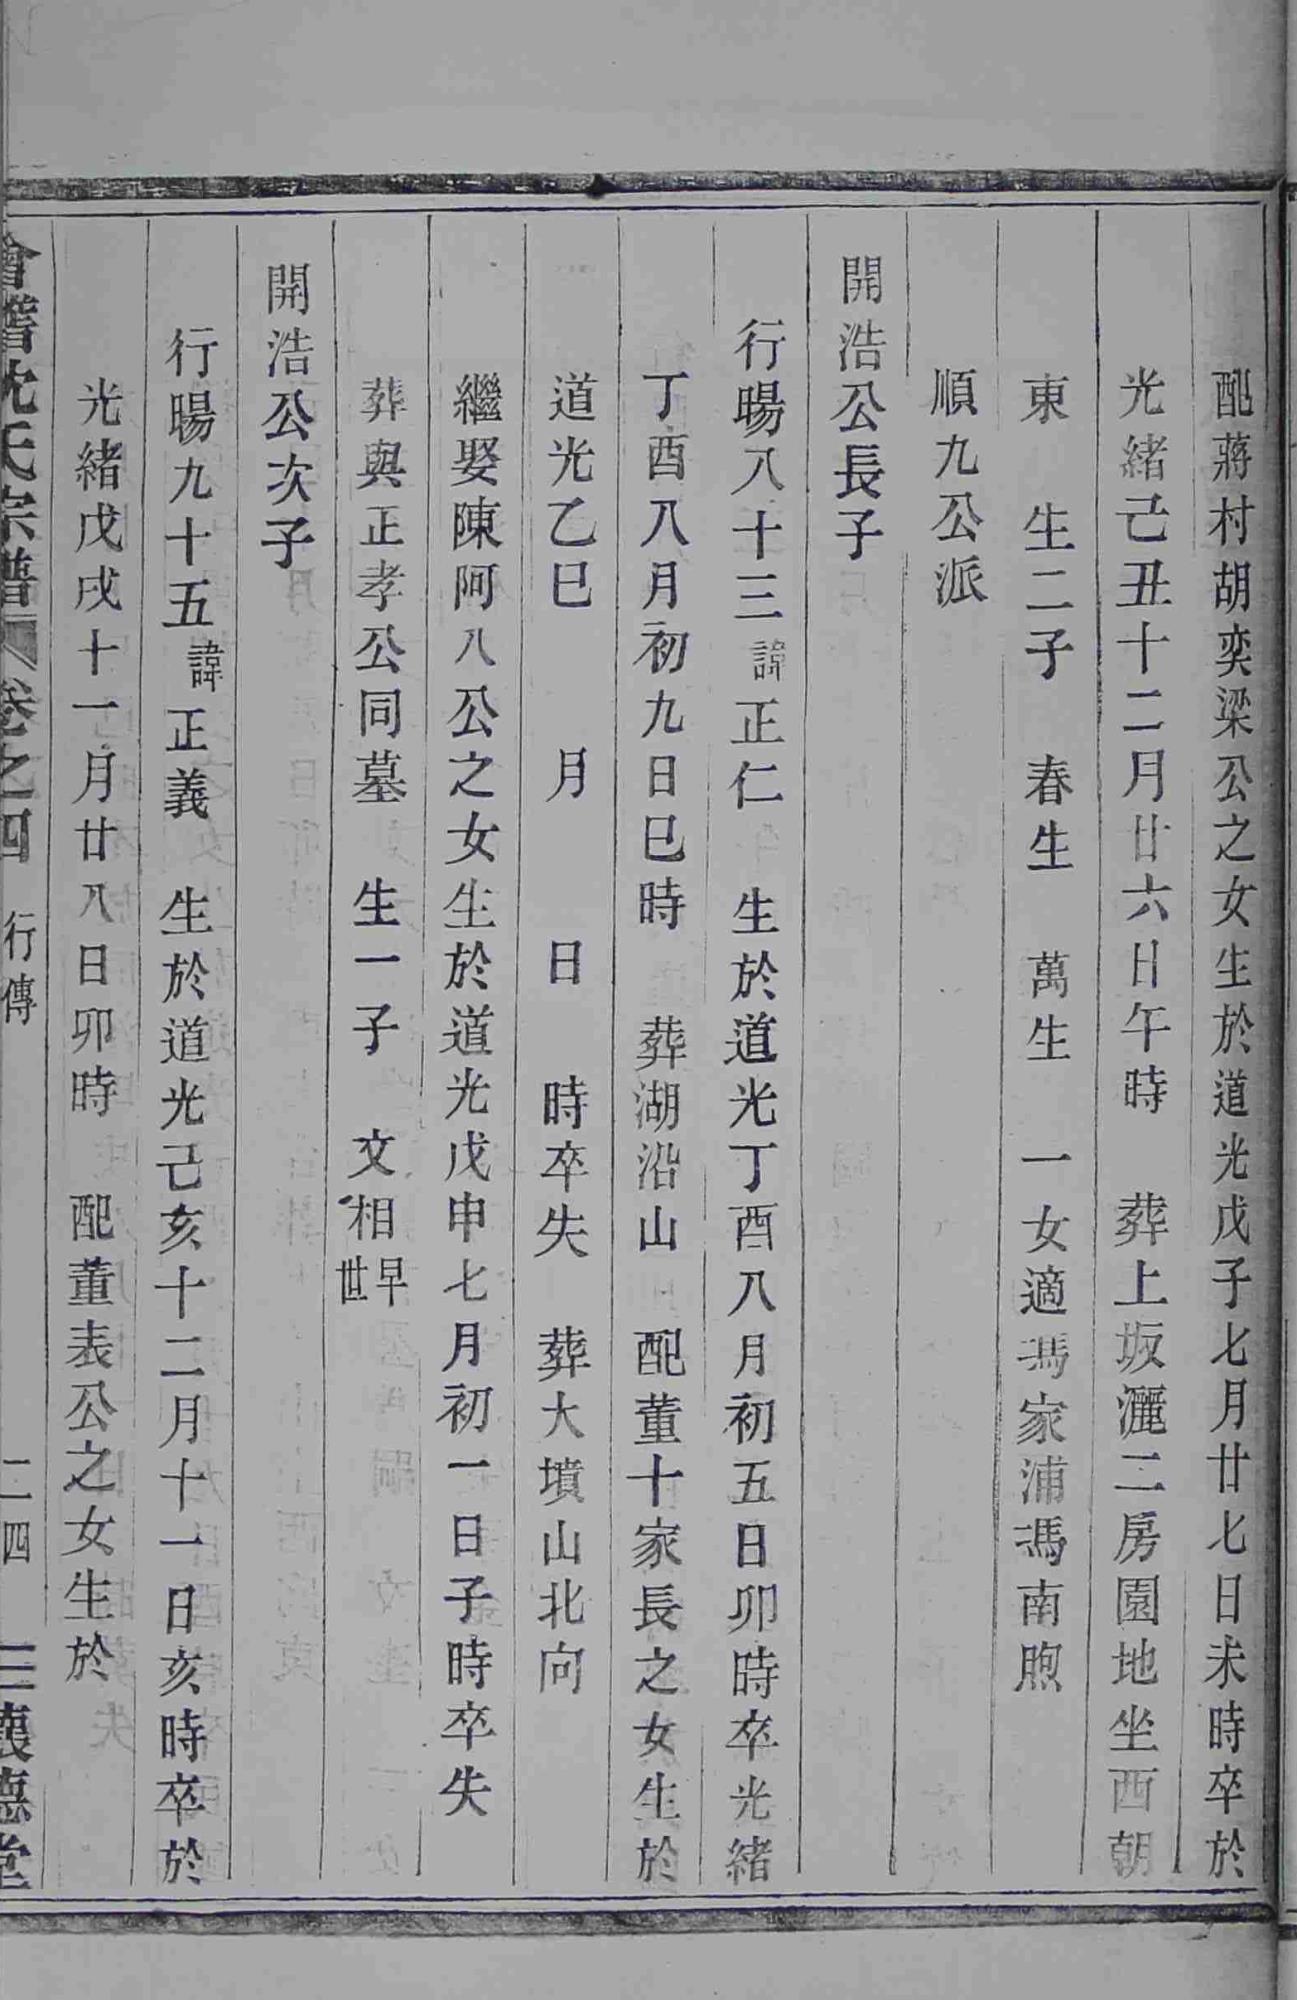 配蔣村胡奕梁公之女生於道光戊子七月廿七日未時卒於
光緒己丑十二月廿六日午時 葬上坂灑二房園地坐西朝
東 生二子 春生 萬生 一女適馮家浦馮南煦
順九公派
開浩公長子
行暘八十三諱正仁 生於道光丁酉八月初五日卯時卒光緒
丁酉八月初九日巳時 葬湖沿山 配董十家長之女生於
道光乙巳 月 日 時卒失 葬大墳山北向
繼娶陳阿八公之女生於道光戊申七月初一日子時卒失
葬與正孝公同墓 生一子 文相早世
開浩公次子
行暘九十五諱正義 生於道光己亥十二月十一日亥時卒於
光緒戊戌十一月廿八日卯時 配董表公之女生於
會稽沈氏宗譜 卷之四 行傳 二四 三懷德堂